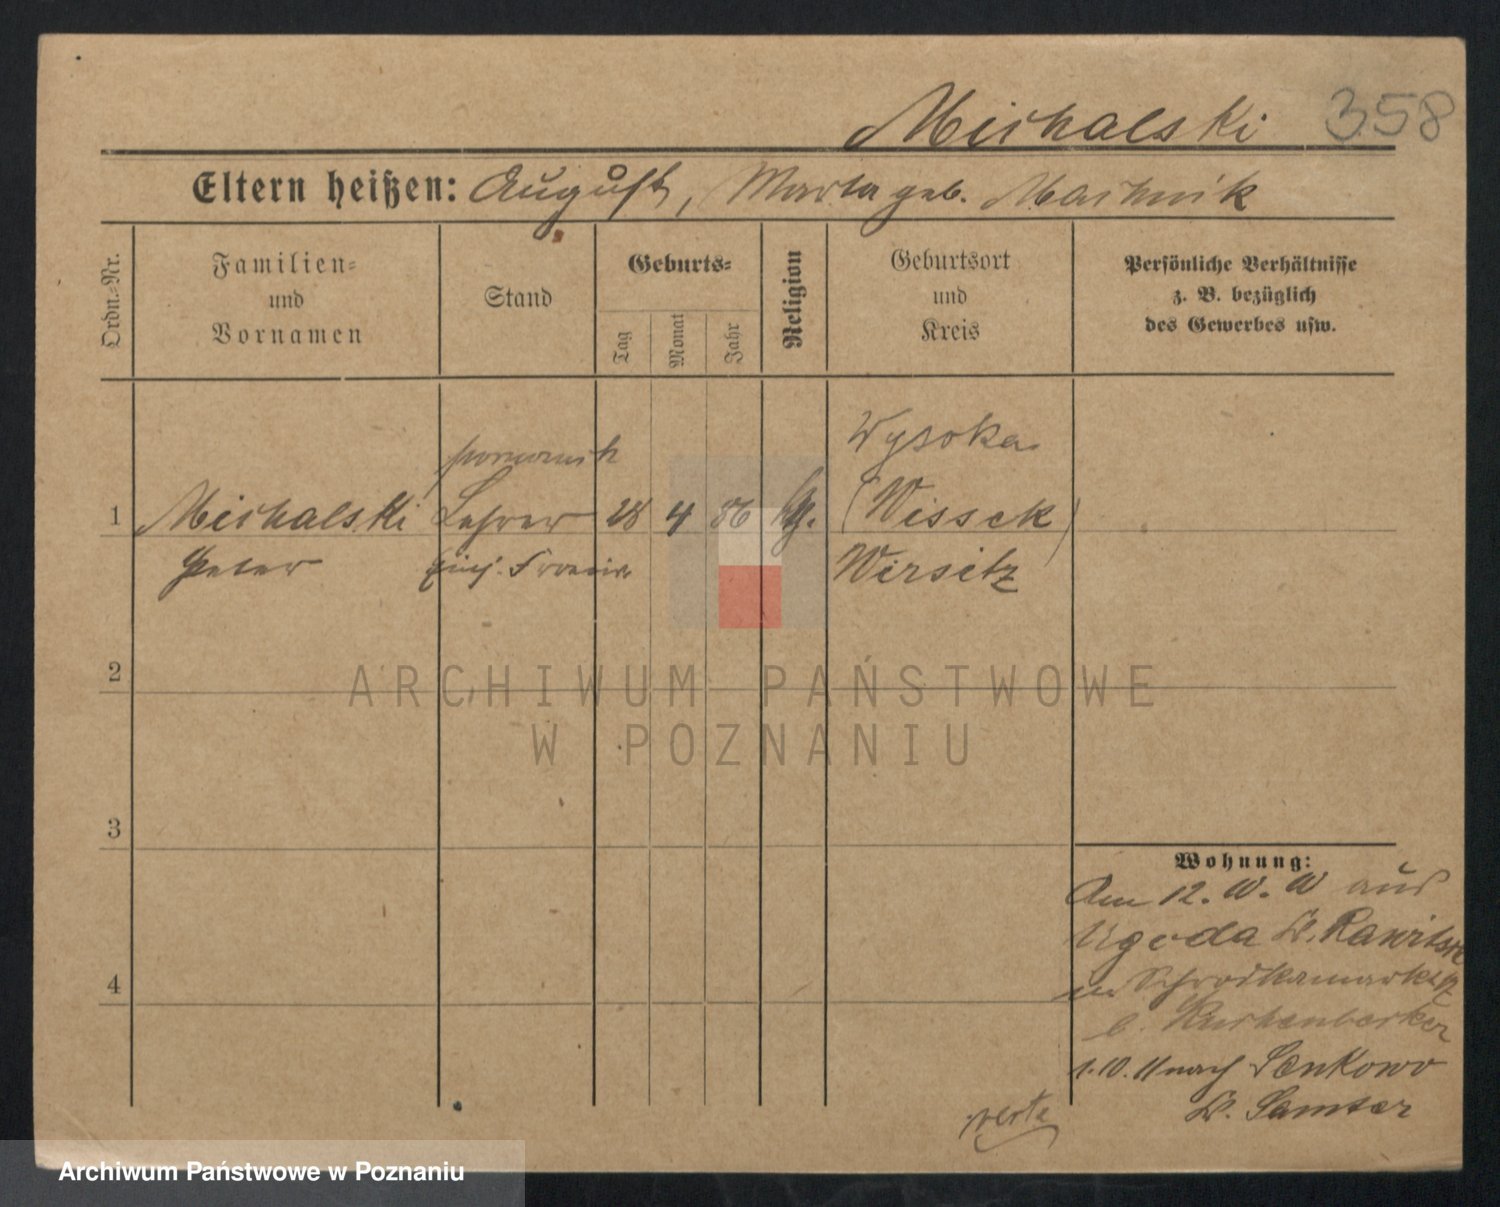 Michalski 358
Eltern heißen: August, Marta geb. Machnik
Ordn.-Nr.
Familien-
und
Vornamen
Stand
Geburts-
Tag
Monat
Jahr
Religion
Geburtsort
und
Kreis
Persönliche Verhältnisse
z. B. bezüglich
des Gewerbes usw.
Wysoka
1 Michalski Lehrer 28 4 86 (Wissek)
Peter Einj. Wirsitz
2
3
4
Wohnung:
Am 12. aus
Ugoda Kr. Rawitsch
in Schrodkamarkt
b. Kuchenbecker
1.10.11 nach Senkowo
Kr. Samter
verte
ARCHIWUM PAŃSTWOWE
W POZNANIU
Archiwum Państwowe w Poznaniu